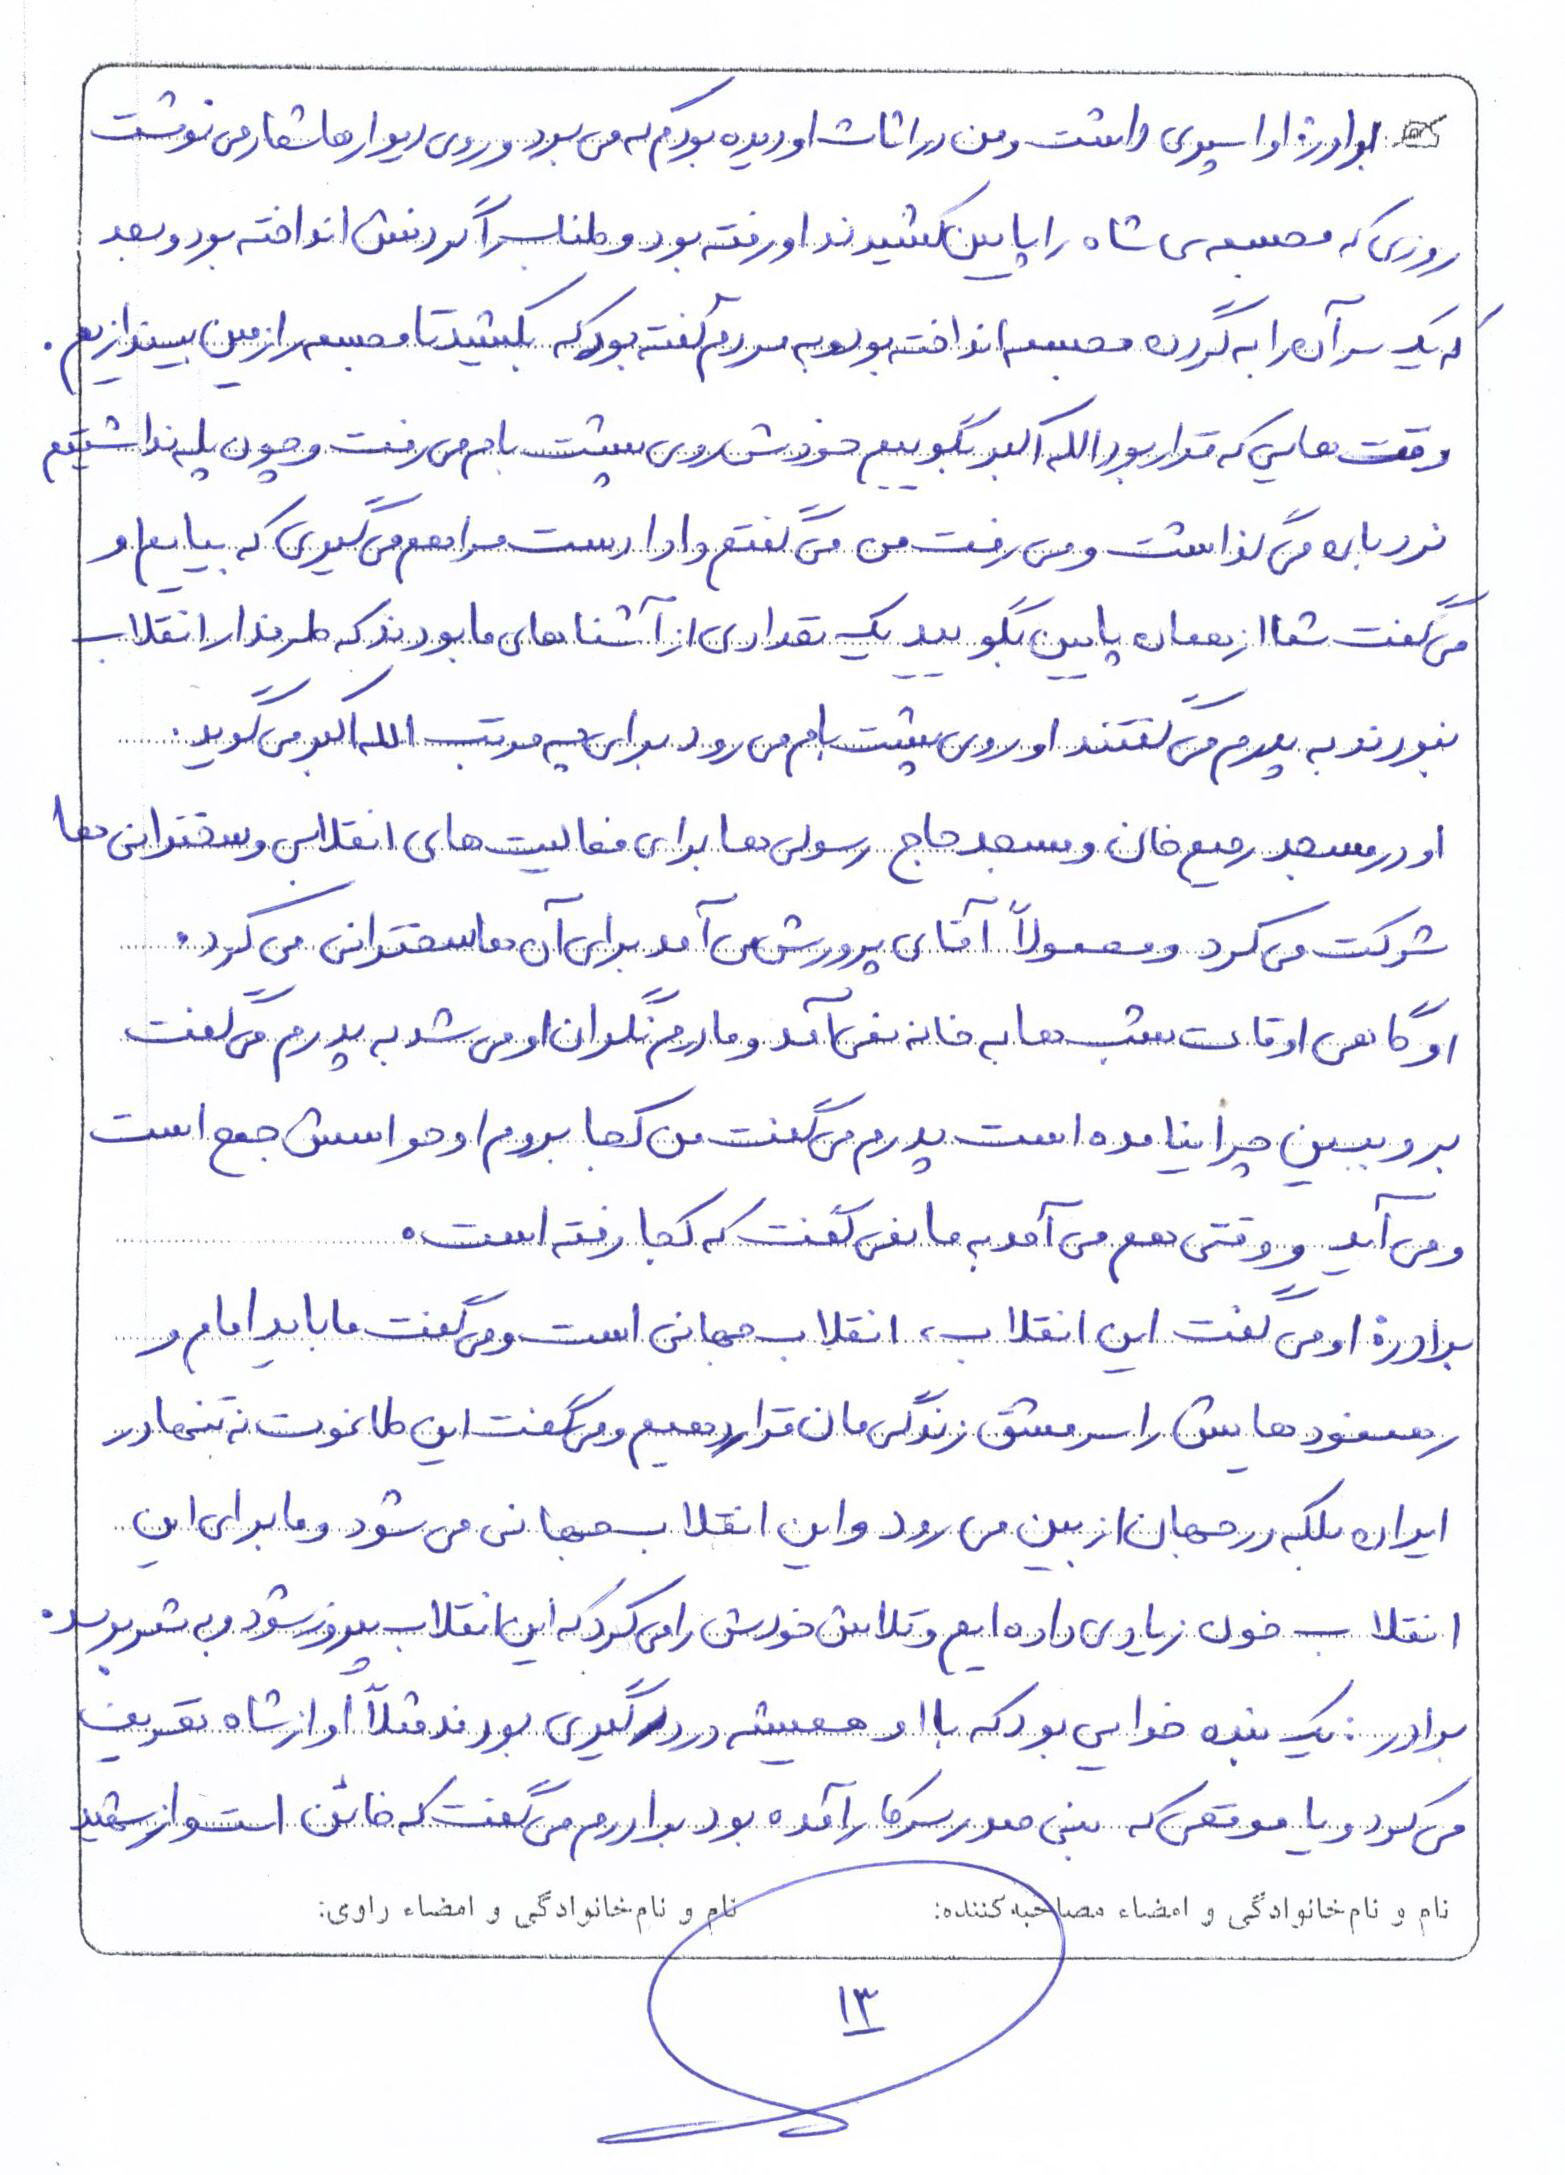 برادر: او اسپری داشت و من در اثاث او دیده بودم که می برد و روی دیوارها شعار می نوشت
روزی که مجسمه ی شاه را پایین کشیدند او رفته بود و طناب را گردنش انداخته بود و بعد
که یک سر آن را به گردن مجسمه انداخته بود و به مردم گفته بود که بکشید تا مجسمه را زمین بیندازیم.
وقت هایی که قرار بود الله اکبر بگوییم خودش روی پشت بام می رفت و چون پله نداشتیم
نردبان می گذاشت و می رفت من می گفتم دادا دست مرا هم می گیری که بیایم او
می گفت شما از همان پایین بگویید یک تعدادی از آشناهای ما بودند که طرفدار انقلاب
نبودند به پدرم می گفتند او روی پشت بام می رود برای چه مرتب الله اکبر می گوید.
او در مسجد رحیم خان و مسجد حاج رسولی ها برای فعالیت های انقلابی و سخنرانی ها
شرکت می کرد و معمولاً آقای پرورش می آمد برای آن ها سخنرانی می کرد.
او گاهی اوقات شب ها به خانه نمی آمد و مادرم نگران او می شد به پدرم می گفت
برو ببین چرا نیامده است پدرم می گفت من کجا بروم او حواسش جمع است
و می آید و وقتی هم می آمد به ما نمی گفت که کجا رفته است.
برادر: او می گفت این انقلاب، انقلاب جهانی است و می گفت ما باید امام و
رهنمودهایش را سرمشق زندگی مان قرار دهیم و می گفت این طاغوت نه تنها در
ایران بلکه در جهان از بین می رود و این انقلاب جهانی می شود و ما برای این
انقلاب خون زیادی داده ایم و تلاش خودش را می کرد که این انقلاب پیروز شود و به ثمر برسد.
برادر: یک بنده خدایی بود که با او همیشه در درگیری بودند مثلاً او از شاه تعریف
می کرد و یا موقعی که بنی صدر سر کار آمده بود برادرم می گفت که خائن است و از شهید
نام و نام خانوادگی و امضاء مصاحبه کننده: نام و نام خانوادگی و امضاء راوی:
۱۳